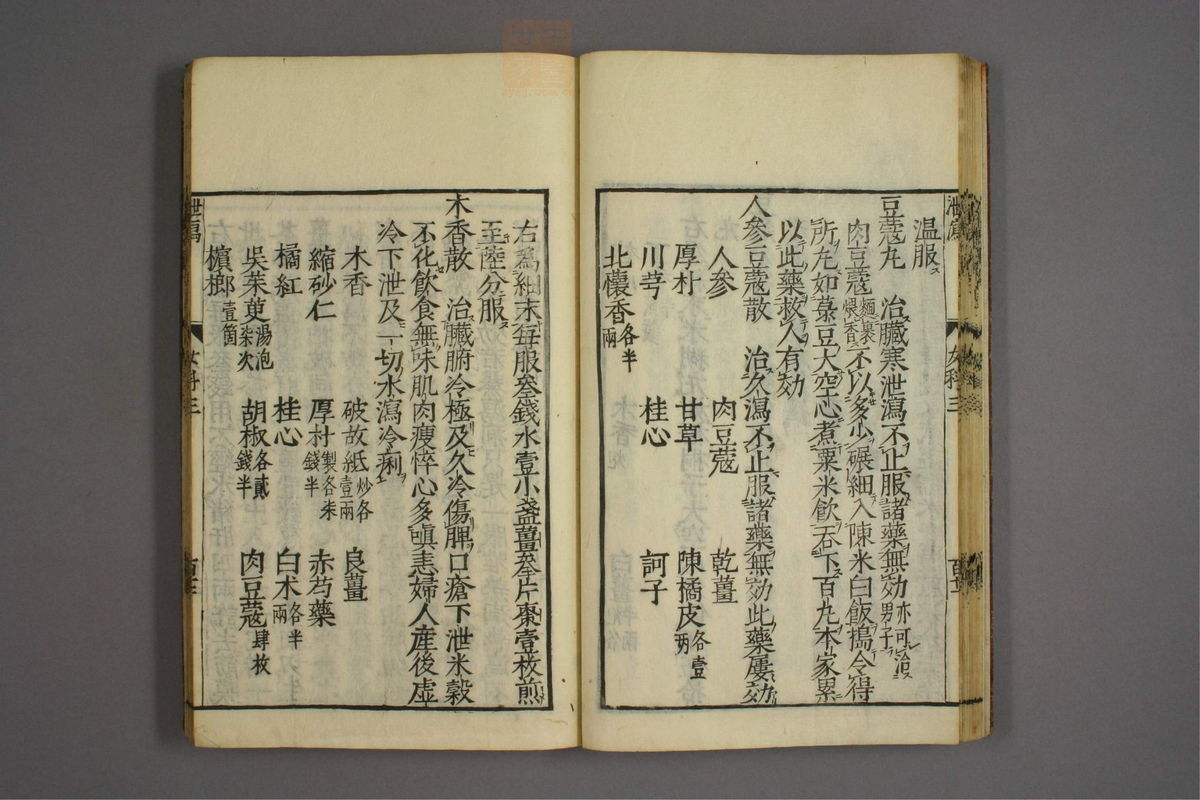 温服
豆蔻丸 治臟寒泄瀉不止服諸藥無効亦可治男子
肉豆蔻麵裹煨香不以多少碾細入陳米白飯搗令得
所丸如菉豆大空心煮粟米飲吞下百丸本家累
以此藥救人有効
人參豆蔻散 治久瀉不止服諸藥無効此藥屢効
人參 肉豆蔻 乾薑
厚朴 甘草 陳橘皮各壹兩
川芎 桂心 訶子
北懷香各半兩
右爲細末每服叄錢水壹小盞薑叄片棗壹枚煎
至陸分服
木香散 治臟腑冷極及久冷傷脾口瘡下泄米穀
不化飲食無味肌肉瘦悴心多嗔恚婦人產後虛
冷下泄及一切水瀉冷痢
木香 破故紙炒各壹兩 良薑
縮砂仁 厚朴製各柒錢半 赤芍藥
橘紅 桂心 白术各半兩
吳茱萸湯泡柒次 胡椒各貳錢半 肉豆蔻肆枚
檳榔壹箇
泄瀉 女科三